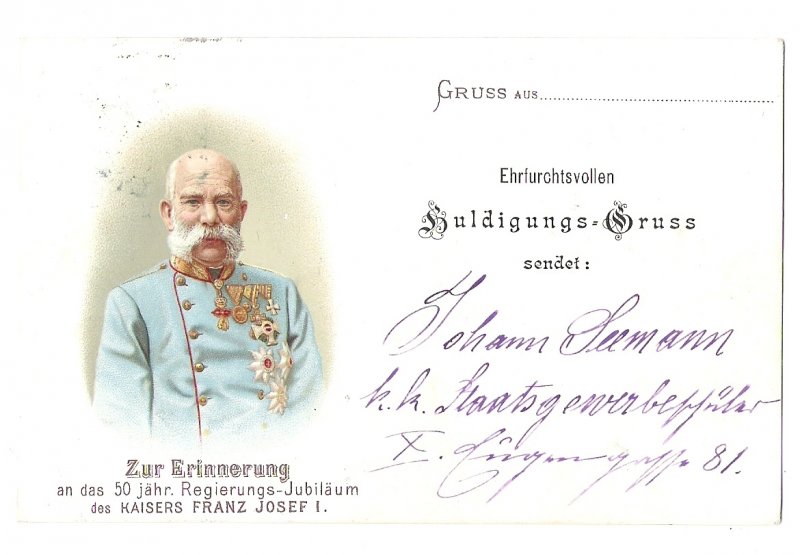 GRUSS AUS
Ehrfurchtsvollen
Huldigungs-Gruss
sendet:
Johann Seemann
k. k. Staatsgewerbeschüler
X. Eugengasse 81.
Zur Erinnerung
an das 50 jähr. Regierungs-Jubiläum
des KAISERS FRANZ JOSEF I.